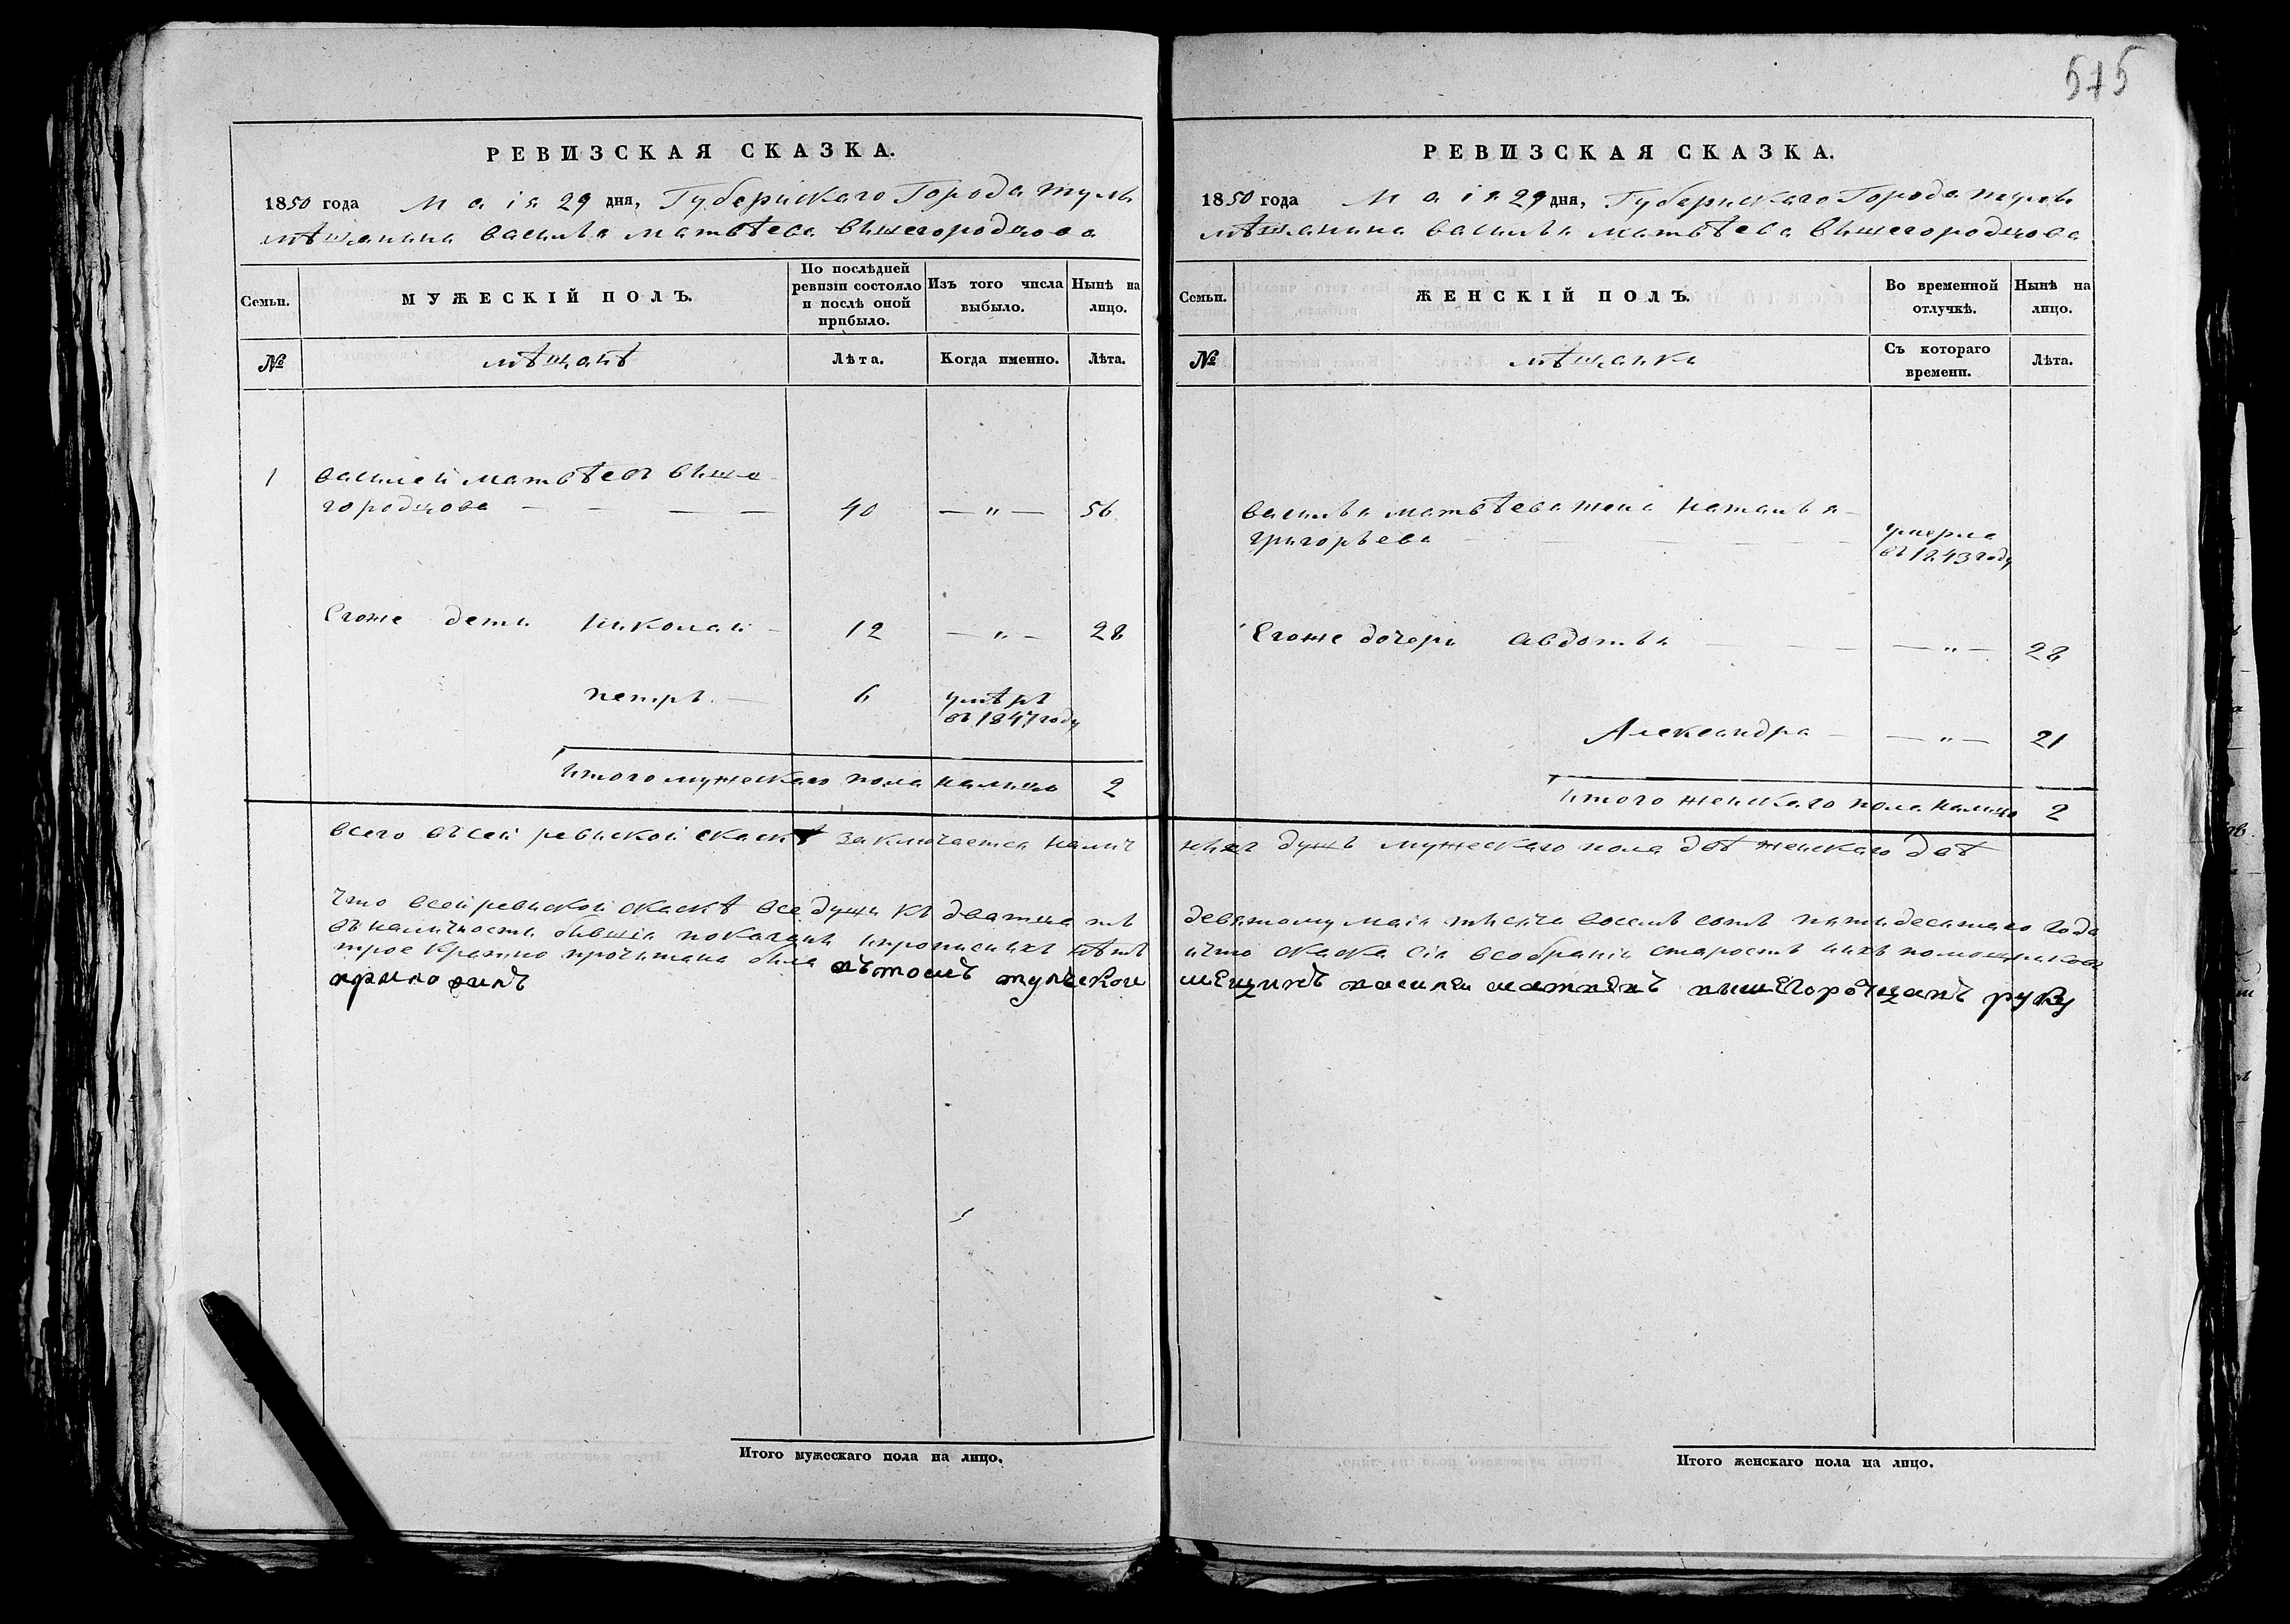 575
РЕВИЗСКАЯ СКАЗКА.
1850 года Маія 29 дня, Губернскаго Города Тулы
мѣщанина Василья Матвѣева Вышегородцова
Семьи.
МУЖЕСКІЙ ПОЛЪ.
По послѣдней ревизіи состояло и послѣ оной прибыло.
Изъ того числа выбыло.
Нынѣ на лицо.
№
мѣщанѣ
Лѣта.
Когда именно.
Лѣта.
1 Василей Матвѣевъ Выше
городцова — — — — 40 — " — 56
Егоже дети Николаи — 12 — " — 28
Петръ — 6 умѣръ
въ 1847 году
Итого мужескаго пола налицо 2
Всего въ сей ревиской скаскѣ заключается налич
Что в сей ревиской скаскѣ все души къ дватцать
въ наличности бывшіи показаны и прописныхъ нѣтъ
трое кратно прочитана была къ тоемъ тулскои
приложилъ
Итого мужескаго пола на лицо.
РЕВИЗСКАЯ СКАЗКА.
1850 года Маія 29 дня, Губернскаго Города Тулы
мѣщанина Василья Матвѣева Вышегородцова
Семьи.
ЖЕНСКІЙ ПОЛЪ.
Во временной отлучкѣ.
Нынѣ на лицо.
№
мѣщанки
Съ котораго времени.
Лѣта.
Василья Матвѣева жена Наталья —
Григорьева — — — — умерла
въ 1843 году
Егоже дочери Авдотья — — — — " — 28
Александра — — " — 21
Итого женскаго пола налицо 2
ныхъ душъ мужескаго пола двѣ женскаго двѣ
девятому маія тысяча восемь сотъ пятидесятаго года
и что скаска сія в собраніи старостъ и ихъ помощниковъ
мещинъ васили матвевъ вышегородцавъ руку
Итого женскаго пола на лицо.